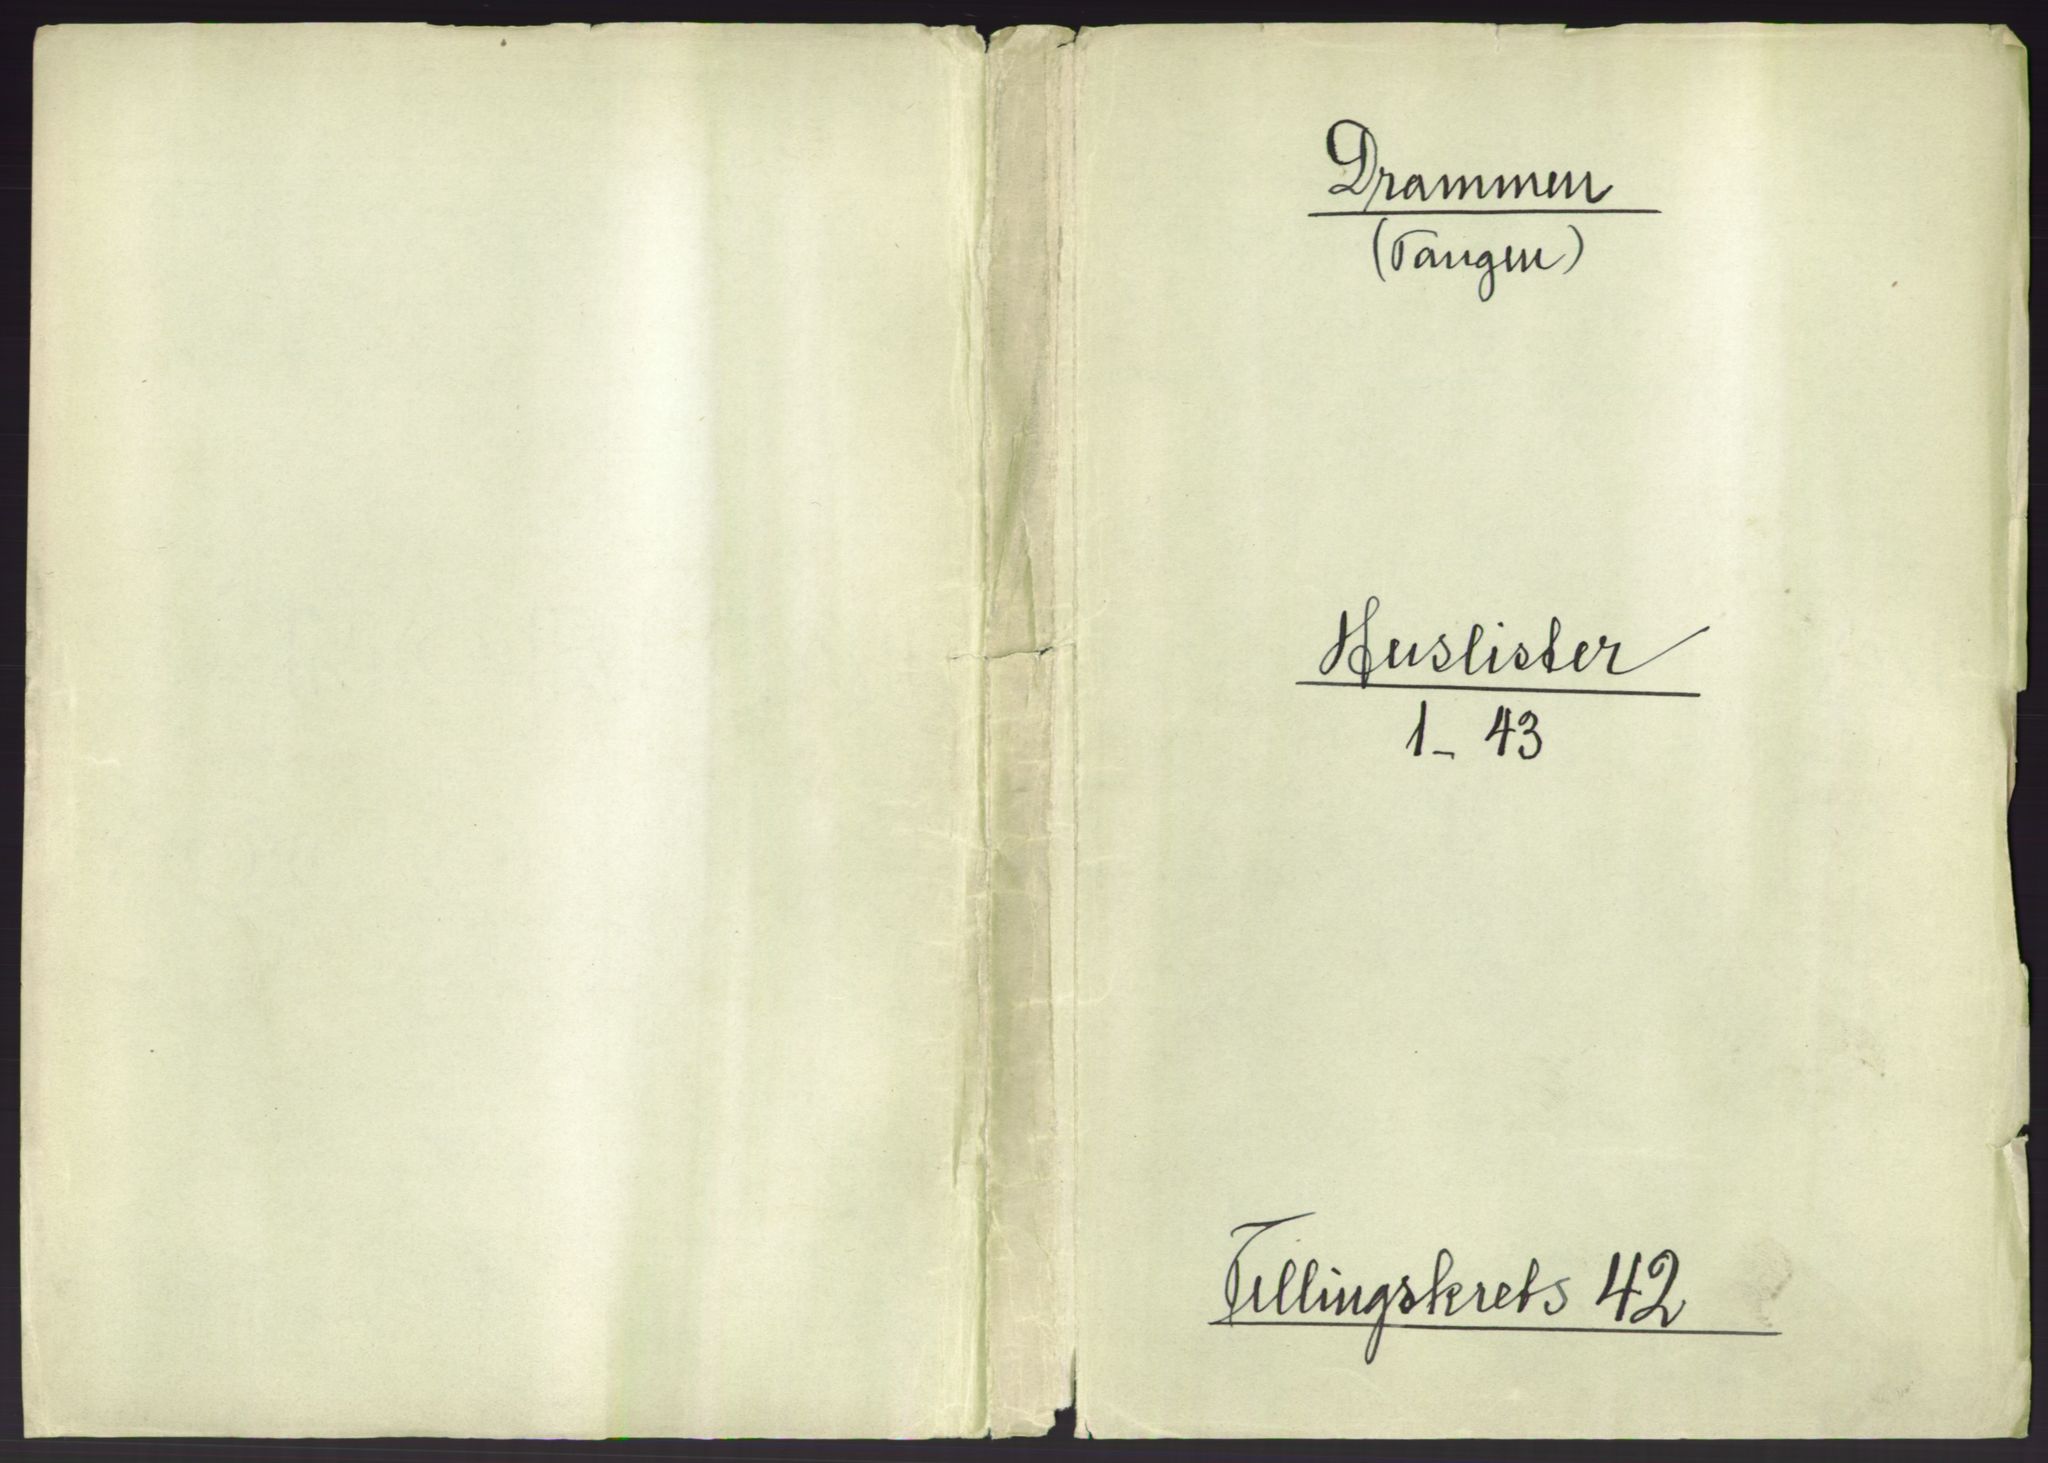 Drammen
(Tangen)
Huslister
1 - 43
Tellingskrets 42